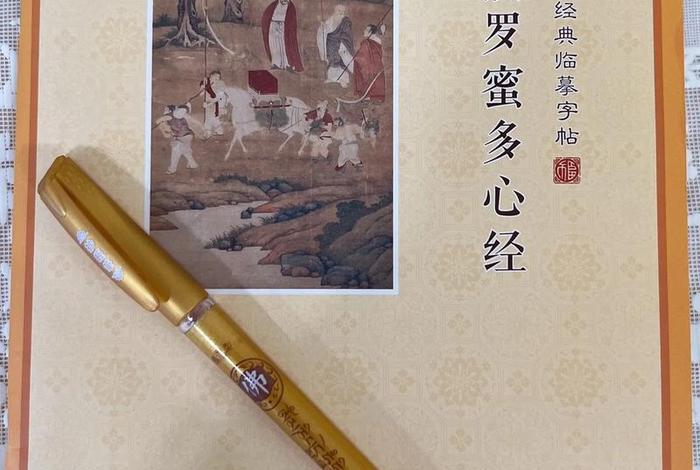 罗蜜多心经
经典临摹字帖
佛